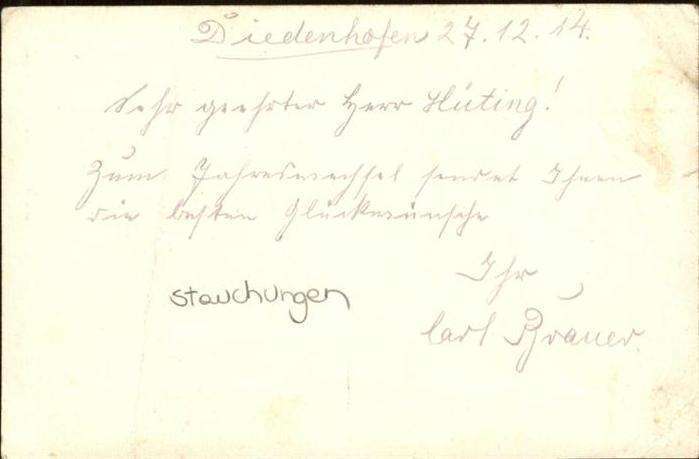 Diedenhofen 27.12.14.
Sehr geehrter Herr Hüting!
Zum Jahreswechsel sendet Ihnen
die besten Glückwünsche
Ihr
stauchungen
Carl Bräuer.